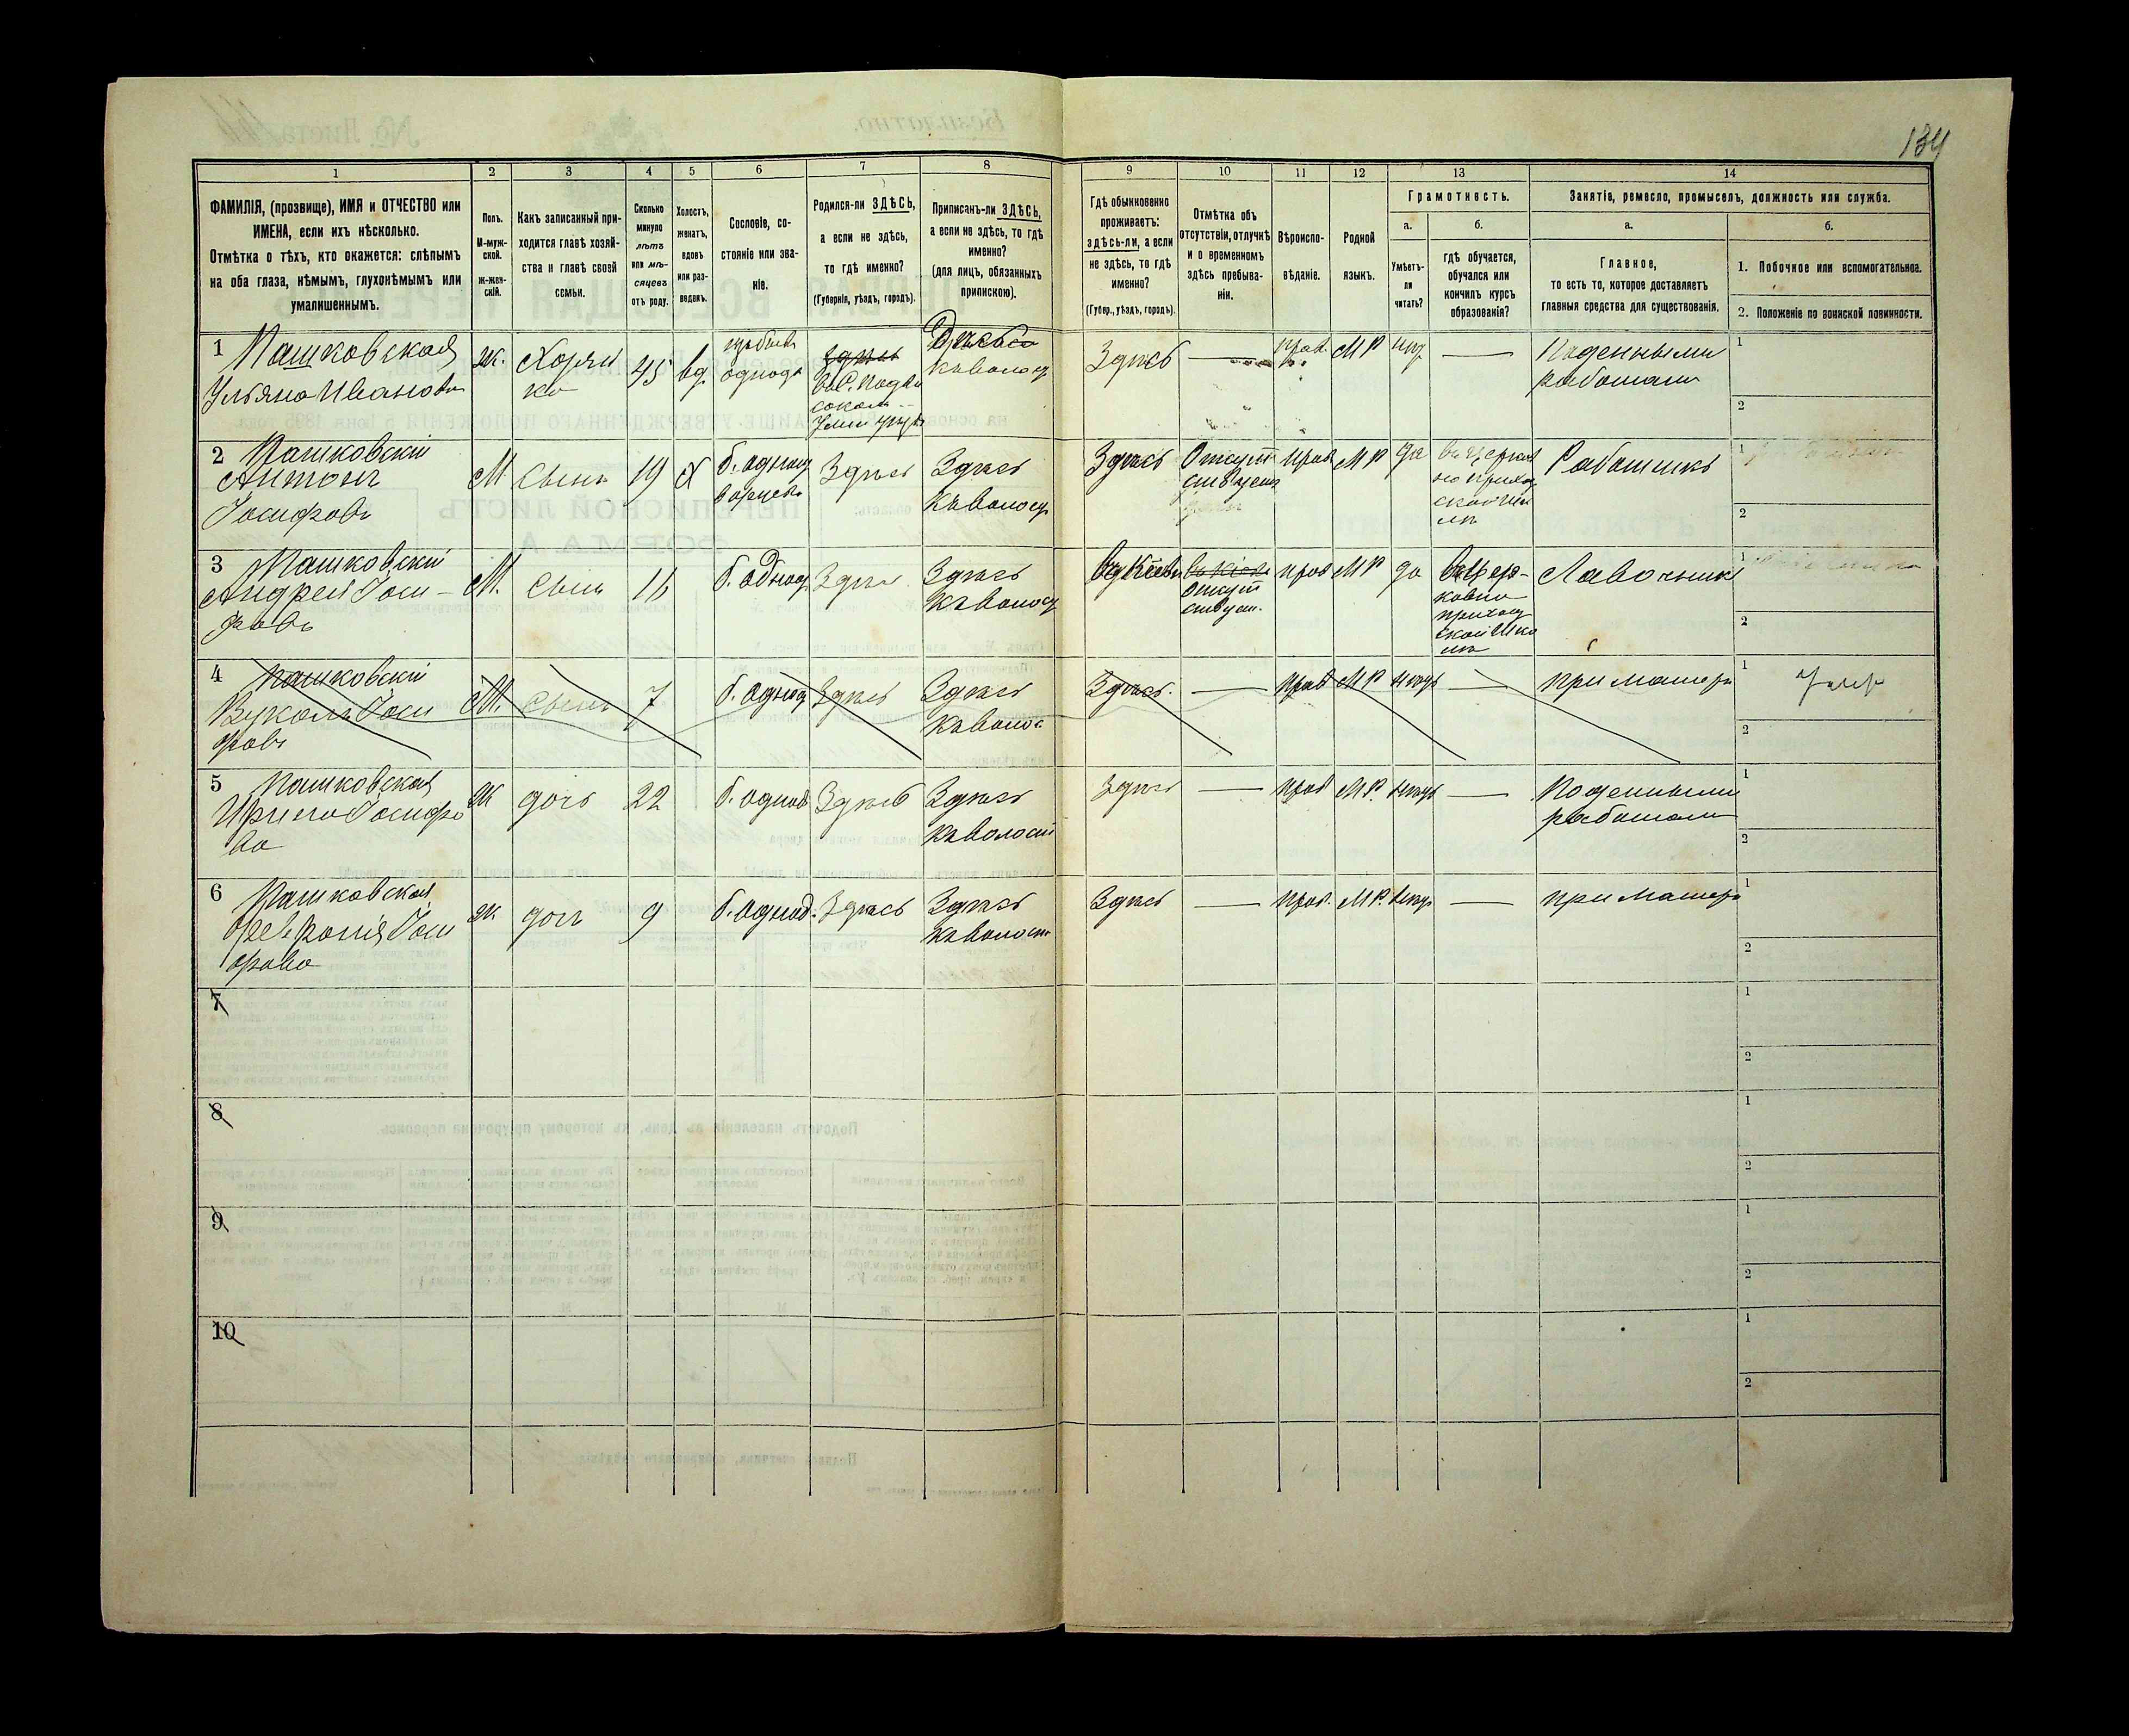 134
1
2
3
4
5
6
7
8
9
10
11
12
13
14
ФАМИЛІЯ, (прозвище), ИМЯ и ОТЧЕСТВО или
ИМЕНА, если ихъ нѣсколько.
Отмѣтка о тѣхъ, кто окажется: слѣпымъ
на оба глаза, нѣмымъ, глухонѣмымъ или
умалишеннымъ.
Полъ.
М-муж-
ской.
Ж-жен-
скій.
Какъ записанный при-
ходится главѣ хозяй-
ства и главѣ своей
семьи.
Сколько
минуло
лѣтъ
или мѣ-
сяцевъ
отъ роду.
Холостъ,
женатъ,
вдовъ
или раз-
веденъ.
Сословіе, со-
стояніе или зва-
ніе.
Родился-ли ЗДѢСЬ,
а если не здѣсь,
то гдѣ именно?
(Губернія, уѣздъ, городъ).
Приписанъ-ли ЗДѢСЬ,
а если не здѣсь, то гдѣ
именно?
(для лицъ, обязанныхъ
припискою).
Гдѣ обыкновенно
проживаетъ:
здѣсь-ли, а если
не здѣсь, то гдѣ
именно?
(Губер., уѣздъ, городъ).
Отмѣтка объ
отсутствіи, отлучкѣ
и о временномъ
здѣсь пребыва-
ніи.
Вѣроиспо-
вѣданіе.
Родной
языкъ.
Грамотность.
а.
Умѣетъ-
ли
читать?
б.
гдѣ обучается,
обучался или
кончилъ курсъ
образованія?
Занятіе, ремесло, промыселъ, должность или служба.
а.
Главное,
то есть то, которое доставляетъ
главныя средства для существованія.
б.
1. Побочное или вспомогательное.
2. Положеніе по воинской повинности.
1 Пашковская
Ульяна Иванова
ж.
Хозяй
ка
45
вд.
однодв
Здѣсь
Здѣсь
къ волост
Здѣсь
—
прав.
МР
нѣтъ
—
Поденными
работами
1
2
2 Пашковскій
Антонъ
Іосифовъ
М
Сынъ
19
Х
б. однод
ворецъ
Здѣсь
Здѣсь
къ волост
Здѣсь
Отсут
ствуетъ
прав
МР
да
въ церков
но приход
ской шко
лѣ
Работникъ
1
2
3 Пашковскій
Андрей Іоси-
фовъ
М.
Сынъ
16
б. однод.
Здѣсь
Здѣсь
къ волост
Въ Кіевѣ
Отсут
ствует.
прав
МР
да
въ цер-
ковно
приход
ской шко
лѣ
Лавочникъ
1
2
4 Пашковскій
Вуколъ Іоси
фовъ
М.
Сынъ
7
б. однод
Здѣсь
Здѣсь
къ волос.
Здѣсь.
—
прав
МР
нѣтъ
—
при матери
1
2
5 Пашковская
Ирина Іосифо
ва
Ж
дочь
22
б. однод
Здѣсь
Здѣсь
къ волости
Здѣсь
—
прав
МР.
нѣтъ
—
Поденными
работами
1
2
6 Пашковская
Февронія Іоси
фова
Ж
дочь
9
б. однод.
Здѣсь
Здѣсь
къ волост
Здѣсь
—
прав.
МР.
нѣтъ
—
при матери
1
2
7
1
2
8
1
2
9
1
2
10
1
2